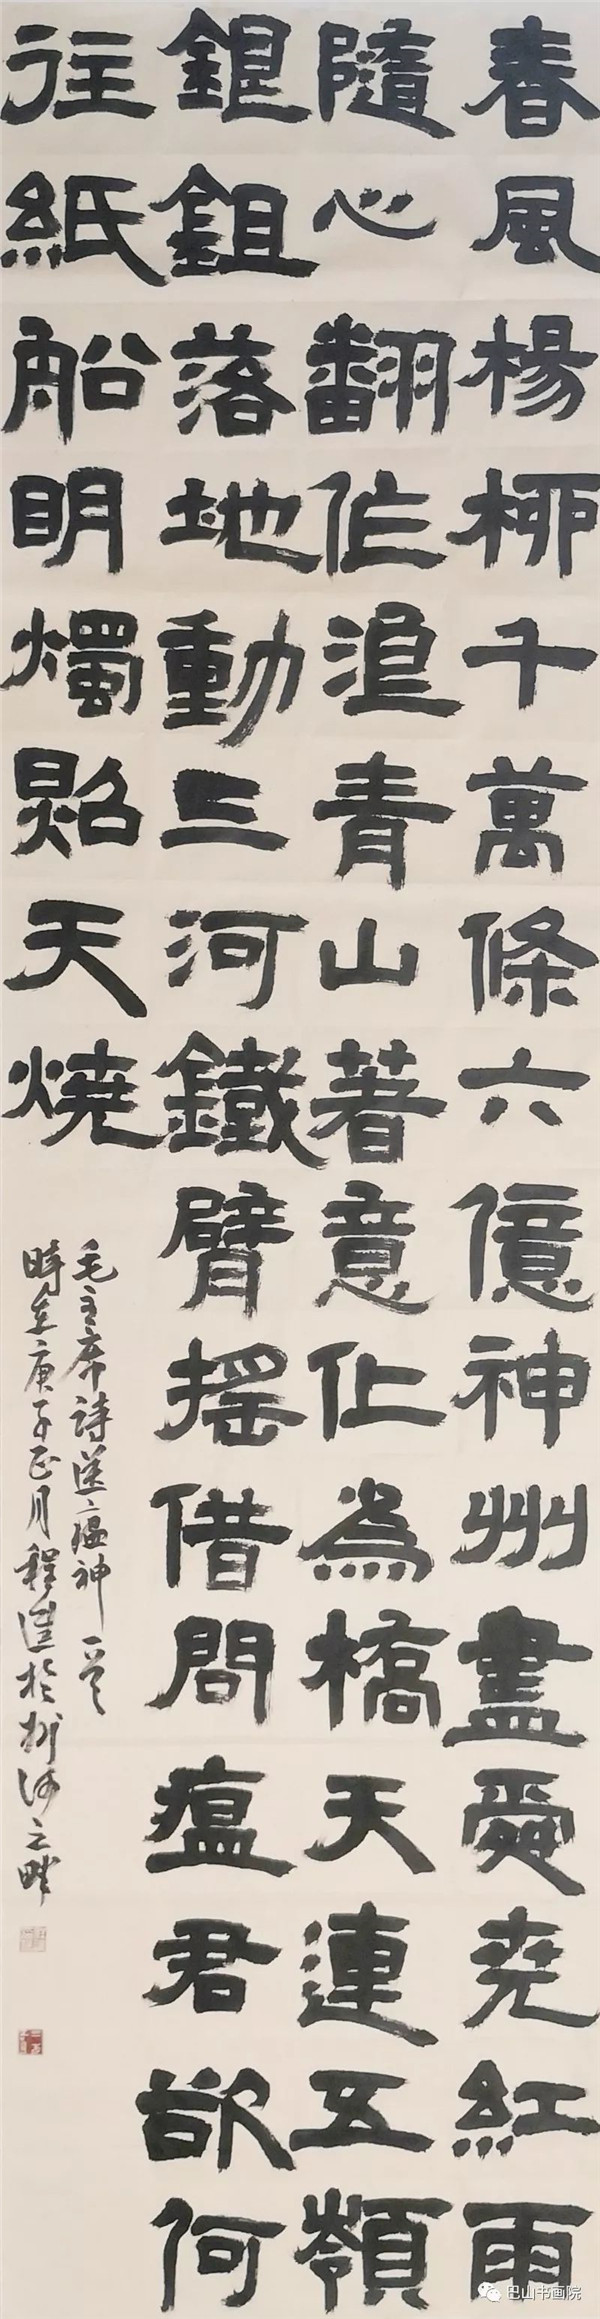 春風楊柳千萬條六億神州盡舜堯紅雨
隨心翻作浪青山著意化為橋天連五嶺
銀鉏落地動三河鐵臂搖借問瘟君欲何
往紙船明燭照天燒
毛主席詩送瘟神一首
時在庚子正月程於州河之畔
巴山书画院